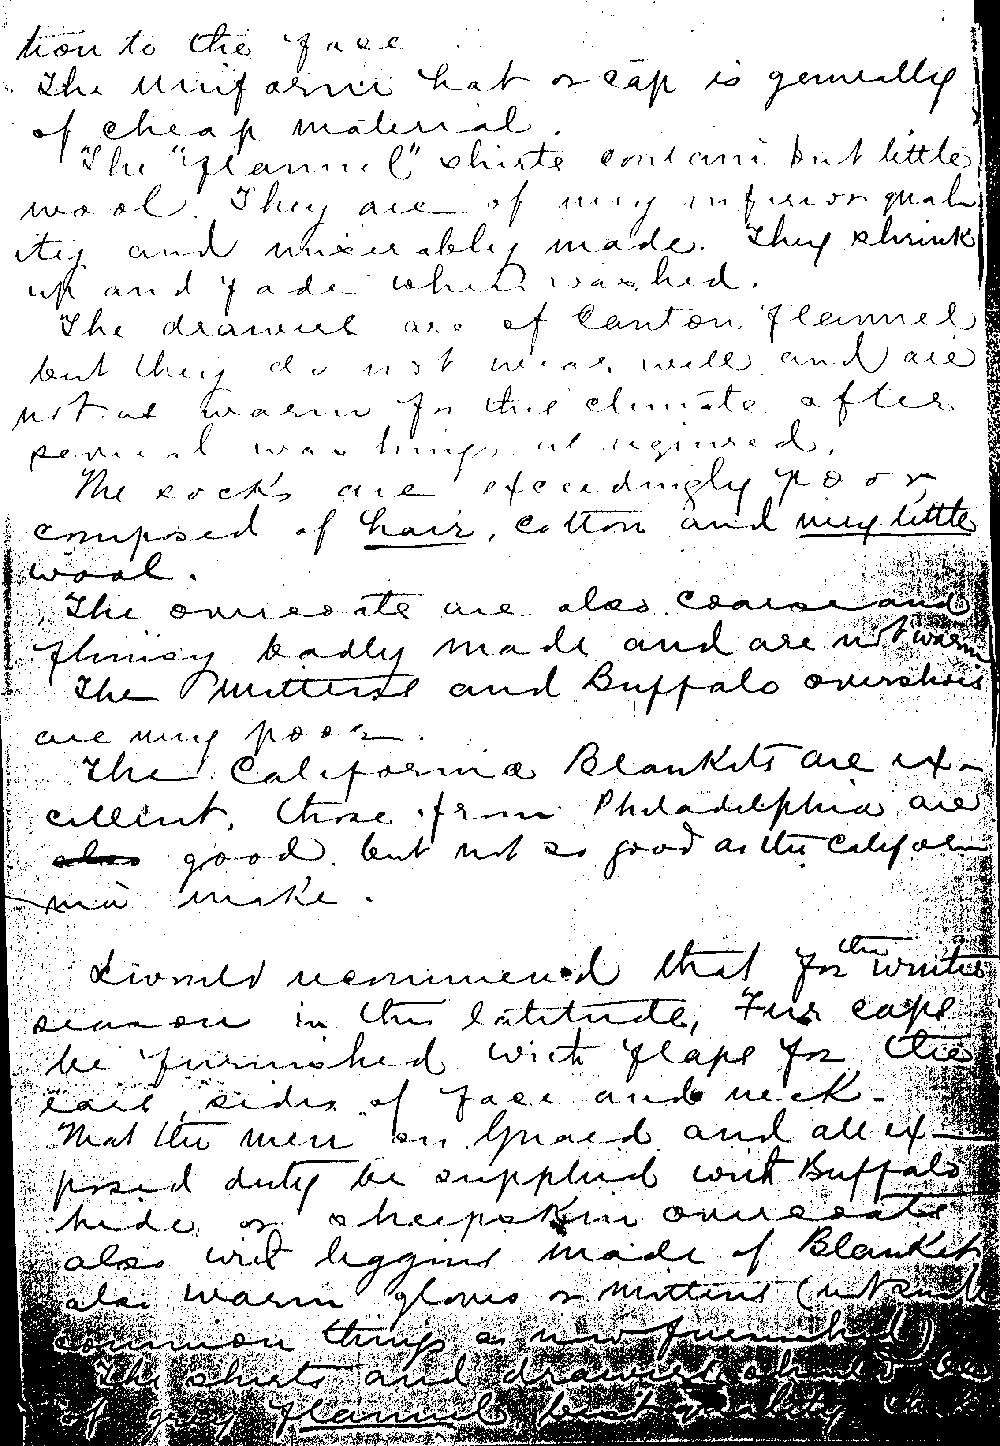 tion to the face
The uniform hat or cap is generally
of cheap material.
The "flannel" shirts contain but little
wool. They are of very inferior qual
ity and miserably made. They shrink
up and fade when washed.
The drawers are of Canton flannel
but they do not wear well and are
not as warm for this climate after
several washings as required.
The socks are exceedingly poor
composed of hair, cotton and very little
wool.
The overcoats are also coarse and
flimsy badly made and are not warm
The Mittens and Buffalo overshoes
are very poor.
The California Blankets are ex-
cellent, those from Philadelphia are
also good but not so good as the Califor
nia make.
I would recommend that for the winter
season in this latitude, Fur caps
be furnished with flaps for the
ears, sides of face and neck-
That the men on Guard and all ex-
posed duty be supplied with Buffalo
hide or sheepskin overcoats
also with leggins made of Blanket
also warm gloves or mittens (not such
common things as now furnished)
The shirts and drawers should be
of grey flannel best quality